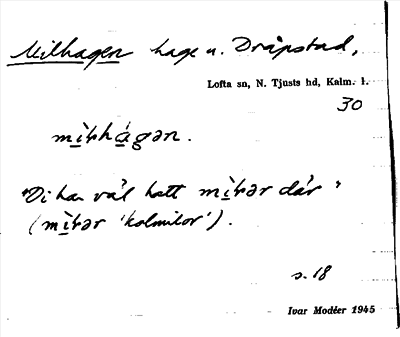 Milhagen hage u. Dråpstad,
Lofta sn, N. Tjusts hd, Kalm. l.
30
mìlhágən.
"Di har väl hatt mìlər där"
(mìlər 'kolmilor').
s. 18
Ivar Modéer 1945